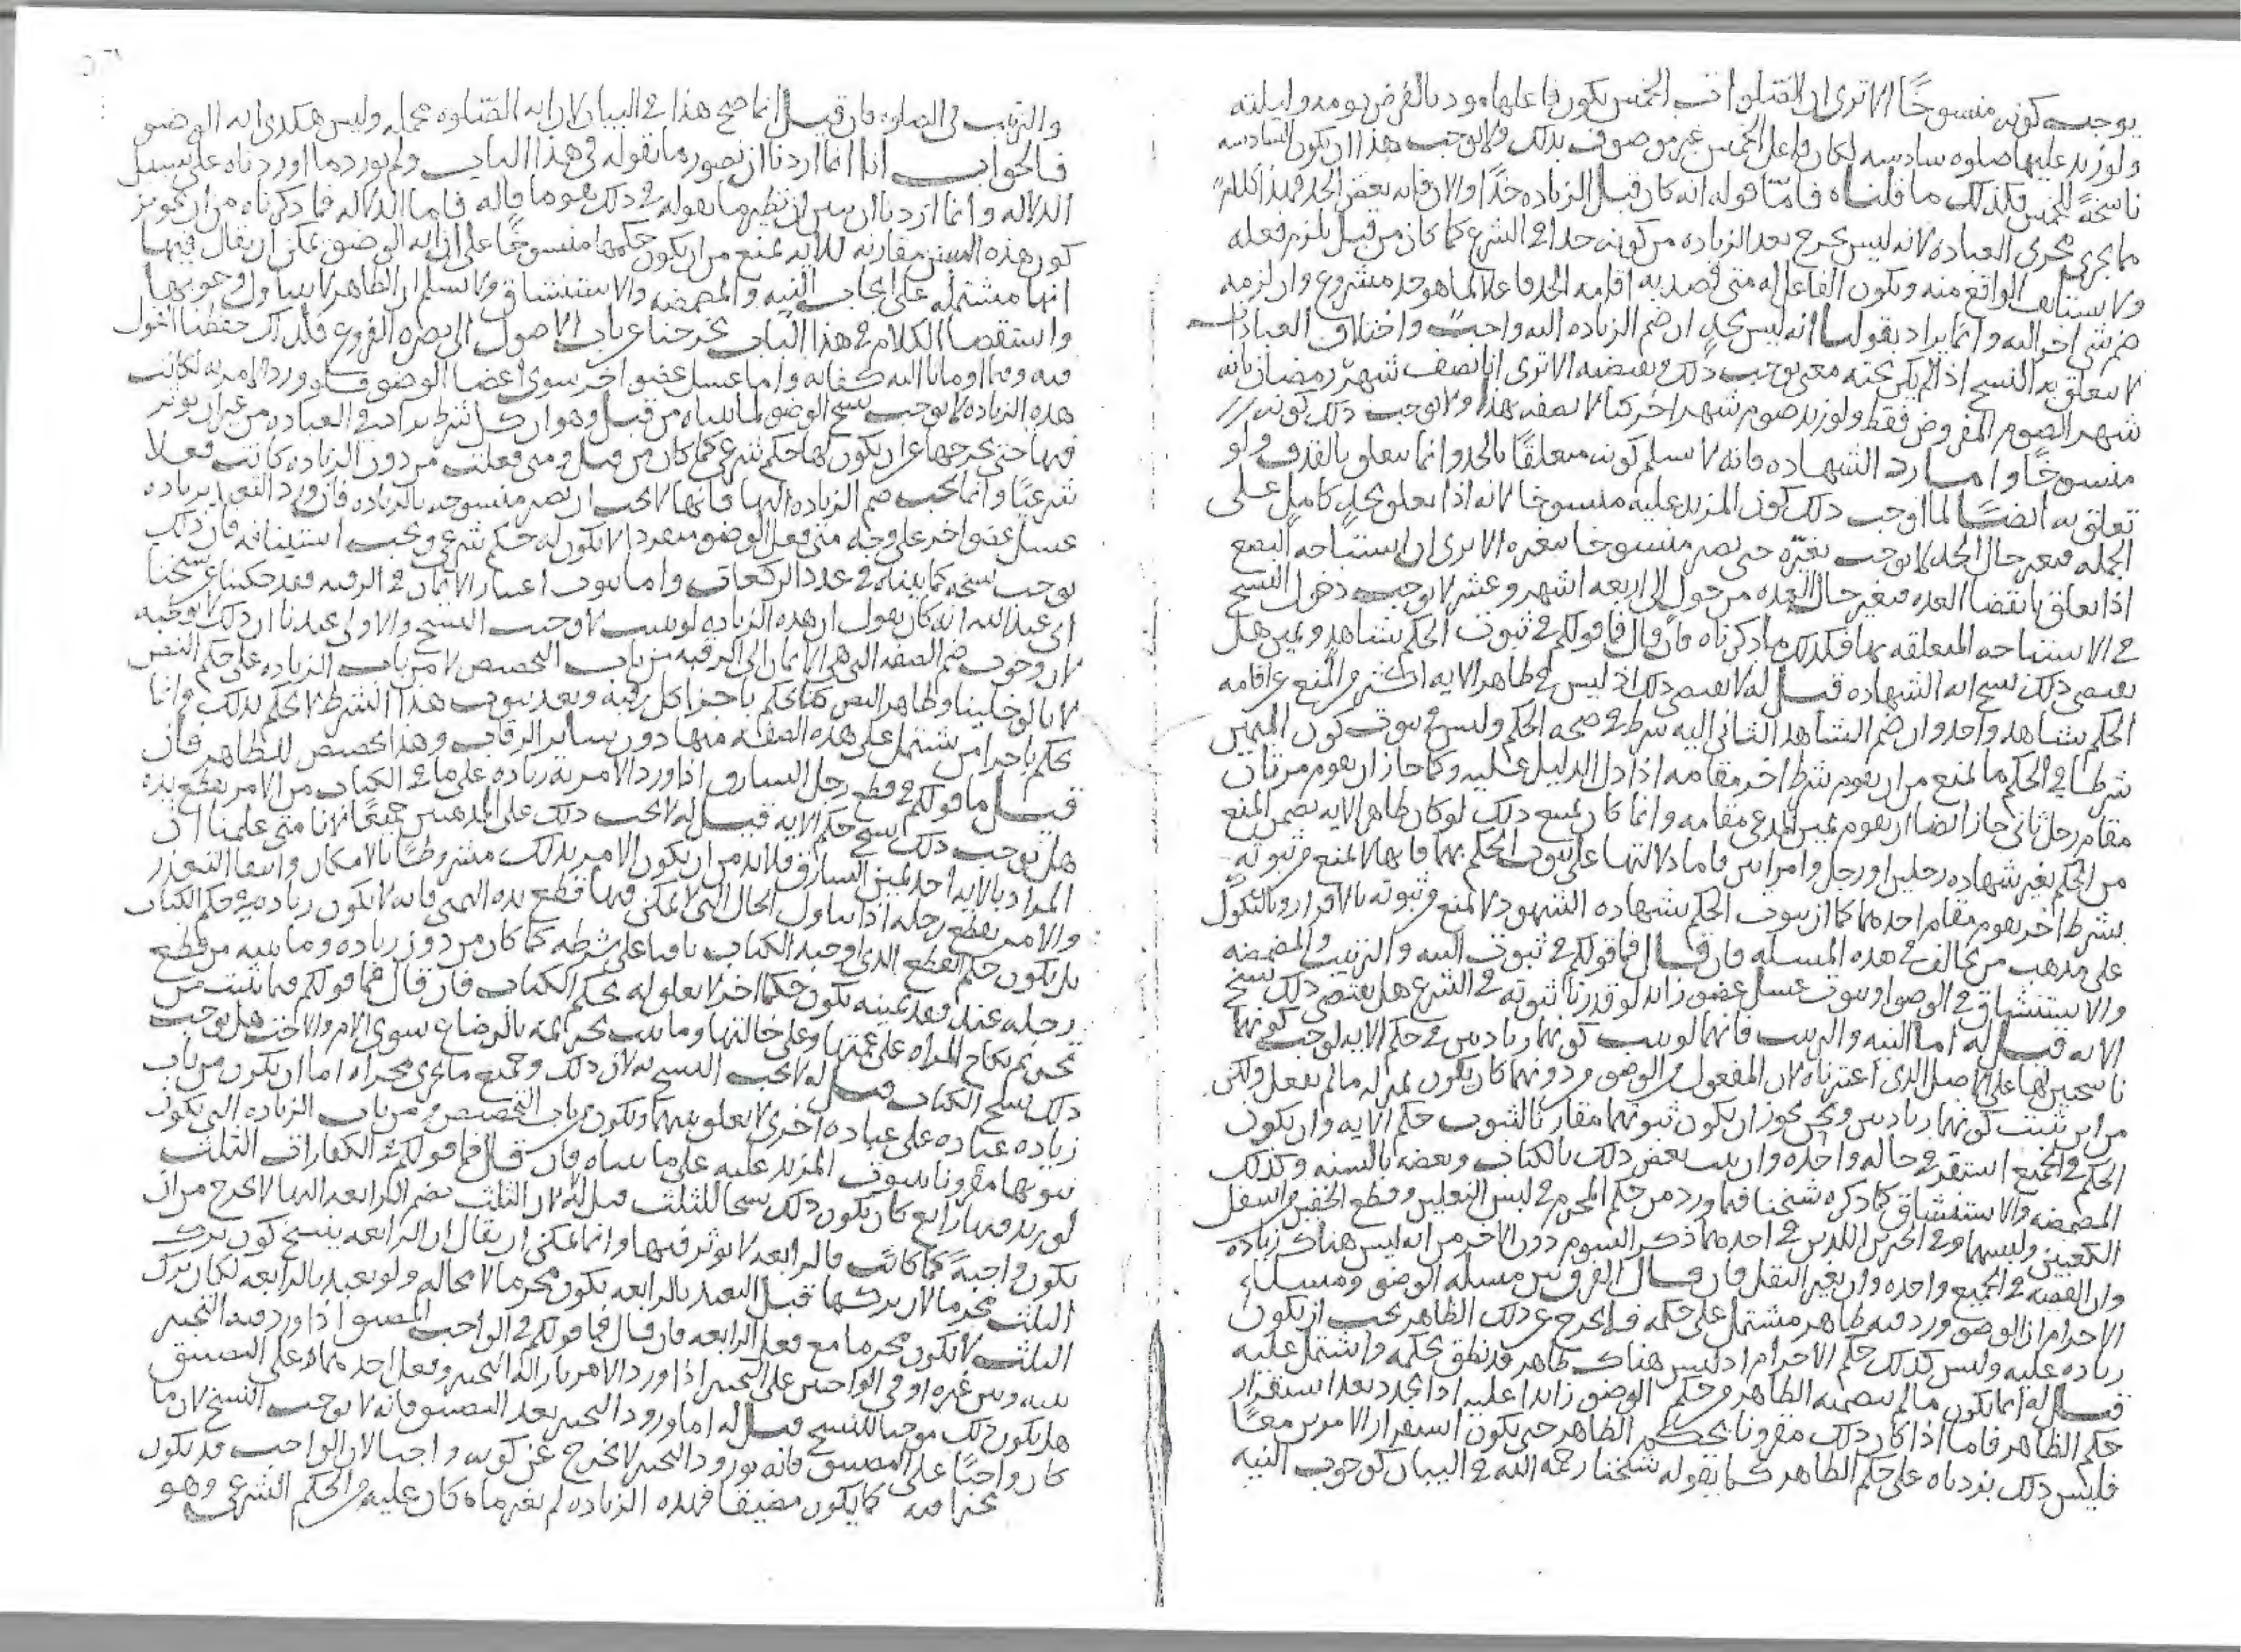 يوجب كونه منسوخًا الا ترى ان الصلوات الخمس يكون فاعلها موديا لفرض يومه وليلته
ولو زيد عليها صلوه سادسه لكان فاعل الخمس غير موصوف بذلك ولا يوجب هذا ان يكون السادسه
ناسخةً للخمس فكذلك ما قلناه فامّا قوله انه كان قبل الزياده حدًا والان فانه بعض الحد فهذا كلام
ما يجرى مجرى العباده لانه ليس يخرج بعد الزياده من كونه حدا في الشرع كما كان من قبل يلزم فعله
ولا يستانف الواقع منه ويكون الفاعل له متى قصد به اقامه الحد فاعلا لما هو حد مشروع وان لزمه
ضم شي اخر اليه وانما يراد بقولنا انه ليس بحد ان ضم الزياده اليه واجب واختلاف العبادات
لا يتعلق به النسخ اذا لم يكن تحته معنى يوجب ذلك ويقتضيه الا ترى انا نصف شهر رمضان بانه
شهر الصوم المفروض فقط ولو زيد صوم شهر اخر كنا لا نصفه بهذا ولا يوجب ذلك كونه
منسوخًا واما رد الشهاده فانه لا نسلم كونه متعلقًا بالحد وانما يتعلق بالقذف ولو
تعلق به ايضًا لما اوجب ذلك كون المزيد عليه منسوخا لانه اذا تعلق بحد كامل على
الجمله فتغير حال الحد لا يوجب تغيّره حتى يصير منسوخا بتغيره الا ترى ان استباحه البضع
اذا تعلق بانقضا العده فتغير حال العده من حول الى اربعه اشهر وعشر لا يوجب دخول النسخ
في الاستباحه المتعلقه بها فكذلك ما ذكرناه فان قال فما قولكم في ثبوت الحكم بشاهد ويمين هل
يقتضى ذلك نسخ ايه الشهاده قيل له لا يقتضى ذلك اذ ليس في ظاهر الايه المنع من اقامه
الحكم بشاهد واحد وان ضم الشاهد الثاني اليه شرط في صحه الحكم وليس في ثبوت كون اليمين
شرطا في الحكم ما يمنع من ان يقوم شرط اخر مقامه اذا دل الدليل عليه وكما جاز ان يقوم مرثان
مقام رجل ثاني جاز ايضا ان يقوم يمين المدعى مقامه وانما كان يمنع ذلك لو كان ظاهر الايه يضمن المنع
من الحكم بغير شهاده رجلين او رجل وامراتين فاما دلالتها على ثبوت الحكم بهما فانها لا تمنع من ثبوته
بشرط اخر يقوم مقام احدهما كما ان ثبوت الحكم بشهاده الشهود لا تمنع من ثبوته بالاقرار وبالنكول
على مذهب من يخالف في هذه المسله فان قال فما قولكم في ثبوت النيه والترتيب والمضمضه
والاستنشاق في الوضوا وثبوت غسل عضو زائد لو قدرنا ثبوته في الشرع هل يقتضى ذلك نسخ
الايه قيل له اما النيه والترتيب فانهما لو ثبت كونهما زيادتين في حكم الايه لوجب كونهما
ناسخين لها على الاصل الذى اعتبرناه لان المفعول من الوضو من دونهما كان يكون بمنزله ما لم يفعل ولكن
من اين ثبت كونهما زيادتين ونحن نجوز ان يكون ثبوتهما مقارنا لثبوت حكم الايه وان يكون
الحكم في الجميع استقر في حاله واحده وان ثبت بعض ذلك بالكتاب وبعضه بالسنه وكذلك
المضمضه والاستنشاق كما ذكره شيخنا فيما ورد من حكم المحرم في لبس النعلين وقطع الخفين من اسفل
الكعبين ولبسهما وفي الخبرين اللذين في احدهما ذكر السوم دون الاخر من انه ليس هناك زياده
وان القصه في الجميع واحده وان تغير النقل فان قال الفرق بين مسله الوضو ومسله
الاحرام ان الوضو ورد فيه ظاهر مشتمل على حكمه فما يخرج عن ذلك الظاهر يجب ان يكون
زياده عليه وليس كذلك حكم الاحرام اذ ليس هناك ظاهر قد نطق بحكمه واشتمل عليه
قيل له انما يكون ما لم يتضمنه الظاهر من حكم الوضو زائدا عليه اذا تجدد بعد استقرار
حكم الظاهر فاما اذا كان ذلك مقرونا بحكم الظاهر حتى يكون استقرار الامرين معًا
فليس ذلك بزياده على حكم الظاهر كما يقوله شيخنا رحمه الله في البيان كوجوب النيه
والترتيب في الصلوه فان قيل انما صح هذا في البيان لان ايه الصّلوه مجمله وليس هكذى ايه الوضو
فالجواب انا انما اردنا ان نصور ما نقوله في هذا الباب ولم نورد ما اوردناه على سبيل
الدلاله وانما اردنا ان نبين ان نظير ما نقوله في ذلك هو ما قاله فاما الدلاله فما ذكرناه من ان تجويز
كون هذه السنن مقارنه للايه يمنع من ان يكون حكمها منسوخًا على ان ايه الوضو يمكن ان يقال فيها
انها مشتمله على ايجاب النيه والمضمضه والاستنشاق ولا نسلم ان الظاهر لا يتناول وجوبها
واستقصا الكلام في هذا الباب يخرجنا عن باب الاصول الى نصره الفروع فلذلك خففنا القول
فيه وفيما اومانا اليه كفايه واما غسل عضو اخر سوى اعضا الوضو فلو ورد الامر به لكانت
هذه الزياده لا توجب نسخ الوضو لما بيناه من قبل وهو ان كل شرط يزاد في العباده من غير ان يوثر
فيها حتى يخرجها عن ان يكون لها حكم شرعى كما كان من قبل ومتى فعلت من دون الزياده كانت فعلا
شرعيًا وانما يجب ضم الزياده اليها فانها لا يجب ان تصير منسوخه بالزياده فان ورد التعبد بزياده
غسل عضو اخر على وجه متى فعل الوضو منفردا لا يكون له حكم شرعى ويجب استينافه فان ذلك
يوجب نسخه كما بيناه في عدد الركعات واما ثبوت اعتبار الايمان في الرقبه فقد حكينا عن شيخنا
ابى عبد الله انه كان يقول ان هذه الزياده لو ثبتت لاوجبت النسخ والاولى عندنا ان ذلك لا يوجبه
لان وجوب ضم الصفه التى هى الايمان الى الرقبه من باب التخصيص لا من باب الزياده على حكم النص
لانا لو خلينا وظاهر النص كنا نحكم باجزا كل رقبه وبعد ثبوت هذا الشرط لا نحكم بذلك وانما
نحكم باجزا من تشتمل على هذه الصفه منها دون سائر الرقاب وهذا تخصيص للظاهر فان
قيل ما قولكم في قطع رجل السارق اذا ورد الامر به زياده على ما في الكتاب من الامر بقطع يده
هل يوجب ذلك نسخ حكم الايه قيل له لا يجب ذلك على المذهبين جميعًا لانا متى علمنا ان
المراد بالايه احد يمين السارق فلابد من ان يكون الامر بذلك مشروطًا بالامكان وانتفا التعذر
والامر بقطع رجله اذا تناول الحال التى لا يمكن فيها قطع يده اليمنى فانه لا يكون زياده في حكم الكتاب
بل يكون حكم القطع الذى اوجبه الكتاب باقيا على شرطه كما كان من دون زياده وما ثبت من قطع
رجله عند فقد يمينه يكون حكما اخر لا تعلق له بحكم الكتاب فان قال فما قولكم فيما ثبت من
تحريم نكاح المراه على عمتها وعلى خالتها وما ثبت تحريمه بالرضاع سوى الام والاخت هل يوجب
ذلك نسخ الكتاب قيل له لا يجب النسخ به لان ذلك وجميع ما يجرى مجراه اما ان يكون من باب
زياده عباده على عباده اخرى لا تعلق بينهما ويكون من باب التخصيص من باب الزياده التى يكون
ثبوتها مقرونا بثبوت المزيد عليه على ما بيناه فان قال فما قولكم في الكفارات الثلث
لو زيد فيها رابع كان يكون ذلك نسخا للثلث قيل له لا لان الثلث بضم الرابعه اليها لا تخرج من ان
تكون واجبةً كما كانت فالرابعه لا توثر فيها وانما يمكن ان يقال ان الرابعه ينسخ كون ترك
الثلث محرما لان تركها قبل التعبد بالرابعه يكون محرما لا محاله ولو تعبد بالرابعه لكان ترك
الثلث لا يكون محرما مع فعل الرابعه فان قال فما قولكم في الواجب المضيق اذا ورد فيه التخيير
بينه وبين غيره او في الواجبين على التخيير اذا ورد الامر بازاله التخيير وفعل احدهما على التضييق
هل يكون ذلك موجبا للنسخ قيل له اما ورود التخيير بعد التضييق فانه لا يوجب النسخ لان ما
كان واجبًا على التضييق فانه بورود التخيير لا يخرج عن كونه واجبا لان الواجب قد يكون
مخيرا فيه كما يكون مضيقا فهذه الزياده لم تغير ما كان عليه من الحكم الشرعى وهو